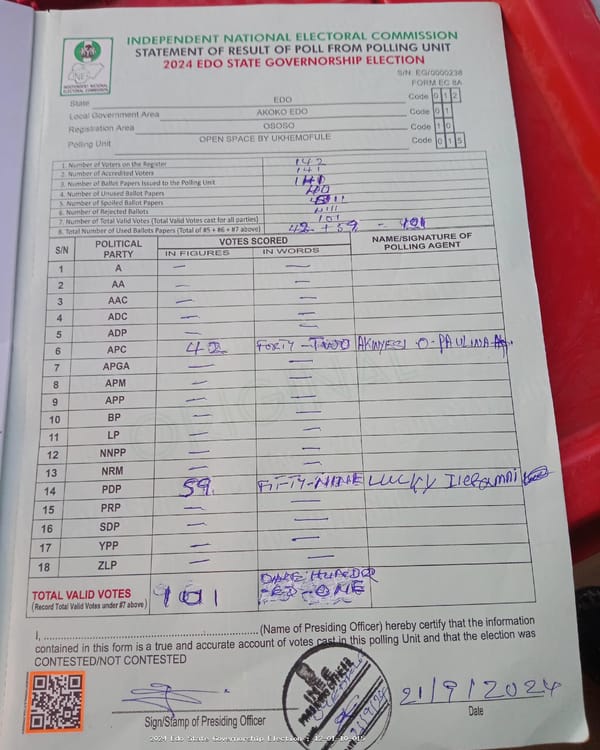 INDEPENDENT NATIONAL ELECTORAL COMMISSION
STATEMENT OF RESULT OF POLL FROM POLLING UNIT
2024 EDO STATE GOVERNORSHIP ELECTION
INDEPENDENT NATIONAL ELECTORAL COMMISSION
S/N: EG/0000238
FORM EC 8A
State EDO Code 012
Local Government Area AKOKO EDO Code 01
Registration Area OSOSO Code 10
Polling Unit OPEN SPACE BY UKHEMOFULE Code 015
1. Number of Voters on the Register 142
2. Number of Accredited Voters 141
3. Number of Ballot Papers Issued to the Polling Unit
4. Number of Unused Ballot Papers 40
5. Number of Spoiled Ballot Papers
6. Number of Rejected Ballots
7. Number of Total Valid Votes (Total Valid Votes cast for all parties) 101
8. Total Number of Used Ballots Papers (Total of #5 + #6 + #7 above) 42 + 59 =
S/N POLITICAL PARTY VOTES SCORED NAME/SIGNATURE OF POLLING AGENT
IN FIGURES IN WORDS
1 A — —
2 AA — —
3 AAC — —
4 ADC — —
5 ADP — —
6 APC 42 FORTY-TWO AKINYEZI O. PAULINA
7 APGA — —
8 APM — —
9 APP — —
10 BP — —
11 LP — —
12 NNPP — —
13 NRM — —
14 PDP 59. FIFTY-NINE LUCKY
15 PRP — —
16 SDP — —
17 YPP — —
18 ZLP — —
TOTAL VALID VOTES 101 ONE HUNDRED - ONE
(Record Total Valid Votes under #7 above)
ORIGINAL
I, ........................................................(Name of Presiding Officer) hereby certify that the information
contained in this form is a true and accurate account of votes cast in this polling Unit and that the election was
CONTESTED/NOT CONTESTED
21/9/2024
Sign/Stamp of Presiding Officer Date
2024 Edo State Governorship Election : 12-01-10-015